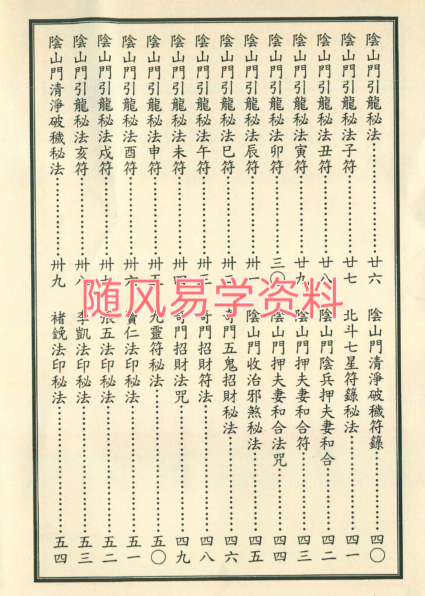 陰山門引龍秘法⋯⋯廿六
陰山門引龍秘法子符⋯⋯廿七
陰山門引龍秘法丑符⋯⋯廿八
陰山門引龍秘法寅符⋯⋯廿九
陰山門引龍秘法卯符⋯⋯三〇
陰山門引龍秘法辰符⋯⋯卅一
陰山門引龍秘法巳符⋯⋯卅二
陰山門引龍秘法午符⋯⋯卅三
陰山門引龍秘法未符⋯⋯卅四
陰山門引龍秘法申符⋯⋯卅五
陰山門引龍秘法酉符⋯⋯卅六
陰山門引龍秘法戌符⋯⋯卅七
陰山門引龍秘法亥符⋯⋯卅八
陰山門清淨破穢秘法⋯⋯卅九
陰山門清淨破穢符籙⋯⋯四〇
北斗七星符籙秘法⋯⋯四一
陰山門陰兵押夫妻和合⋯⋯四二
陰山門押夫妻和合符⋯⋯四三
陰山門押夫妻和合法咒⋯⋯四四
陰山門收治邪煞秘法⋯⋯四五
奇門五鬼招財秘法⋯⋯四六
奇門招財符法⋯⋯四八
奇門招財法咒⋯⋯四九
九靈符秘法⋯⋯五〇
仁法印秘法⋯⋯五一
張五法印秘法⋯⋯五二
李凱法印秘法⋯⋯五三
褚法印秘法⋯⋯五四
随风易学资料